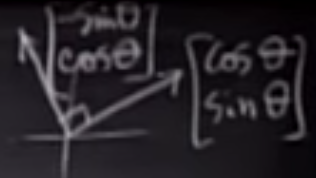 -sinθ
cosθ
cosθ
sinθ